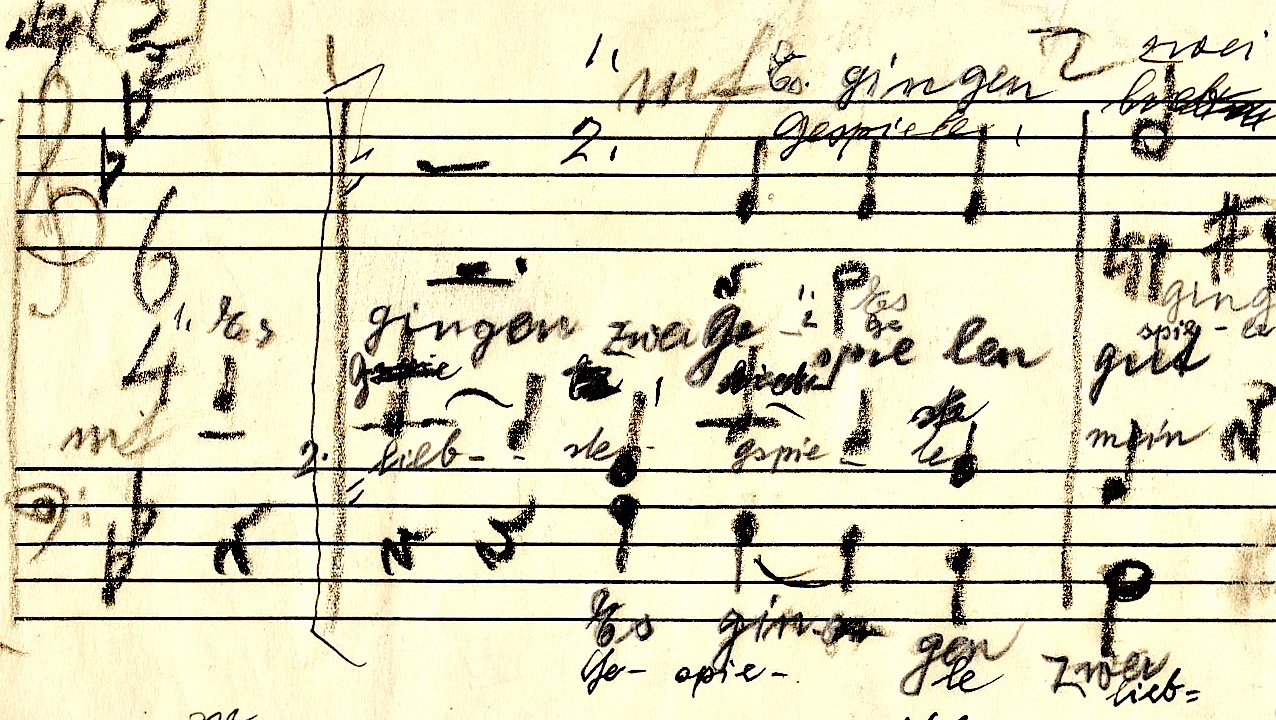 1. mf Es gingen zwei
2. Gespiele,
6
4
1. Es gingen zwei Ge spie len gut
1. Es ging
2. Ge spie - le
mf
2. lieb - ste gspie - le mein
Es gin gen zwei
Ge- spie- le lieb=